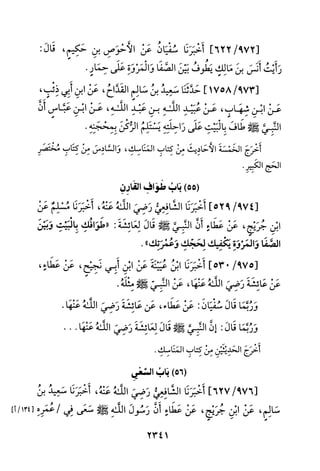 [٦٢٢/٩٧٢] أَخْبَرَنَا سُفْيَانُ عَنْ الأَحْوَصِ بنِ حَكِيمٍ، قَالَ:
رَأَيْتُ أَنَسَ بنَ مَالِكٍ يَطُوفُ بَيْنَ الصَّفَا وَالْمَرْوَةِ عَلَى حِمَارٍ.
[١٧٥٨/٩٧٣] حَدَّثَنَا سَعِيدُ بنُ سَالِمٍ القَدَّاحُ، عَنِ ابنِ أَبِي ذِئْبٍ،
عَنِ ابْنِ شِهَابٍ، عَنْ عُبَيْدِ اللَّهِ بنِ عَبْدِ اللَّهِ، عَنِ ابْنِ عَبَّاسٍ أَنَّ
النَّبِيَّ ﷺ طَافَ بِالْبَيْتِ عَلَى رَاحِلَتِهِ يَسْتَلِمُ الرُّكْنَ بِمِحْجَنِهِ.
أَخْرَجَ الخَمْسَةَ الأَحَادِيثَ مِنْ كِتَابِ المَنَاسِكِ، وَالسَّادِسَ مِنْ كِتَابِ مُخْتَصَرِ
الحَجِ الكَبِيرِ.
(٥٥) بَابُ طَوَافِ القَارِنِ
[٥٢٩/٩٧٤] أَخْبَرَنَا الشَّافِعِيُّ رَضِيَ اللَّهُ عَنْهُ، أَخْبَرَنَا مُسْلِمٌ عَنْ
ابْنِ جُرَيْجٍ، عَنْ عَطَاءٍ أَنَّ النَّبِيَّ ﷺ قَالَ لِعَائِشَةَ: «طَوَافُكِ بِالْبَيْتِ وَبَيْنَ
الصَّفَا وَالمَرْوَةِ يَكْفِيكِ لِحَجِّكِ وَعُمْرَتِكِ».
[٥٣٠/٩٧٥] أَخْبَرَنَا ابْنُ عُيَيْنَةَ عَنْ ابنِ أَبِي نَجِيْحٍ، عَنْ عَطَاءٍ،
عَنْ عَائِشَةَ رَضِيَ اللَّهُ عَنْهَا، عَنْ النَّبِيِّ ﷺ مِثْلَهُ.
وَرُبَّمَا قَالَ سُفْيَانُ: عَنْ عَطَاءٍ، عَن عَائِشَةَ رَضِيَ اللَّهُ عَنْهَا.
وَرُبَّمَا قَالَ: إِنَّ النَّبِيَّ ﷺ قَالَ لِعَائِشَةَ رَضِيَ اللَّهُ عَنْهَا...
أَخْرَجَ الحَدِيْثَيْنِ مِنْ كِتَابِ المَنَاسِكِ.
(٥٦) بَابُ السَّعْيِ
[٦٢٧/٩٧٦] أَخْبَرَنَا الشَّافِعِيُّ رَضِيَ اللَّهُ عَنْهُ، أَخْبَرَنَا سَعِيدُ بنُ
سَالِمٍ، عَنْ ابْنِ جُرَيْجٍ، عَنْ عَطَاءٍ أَنَّ رَسُولَ اللَّهِ ﷺ سَعَى فِي / عُمَرِهِ [١٣٤/أ]
٢٣٤١